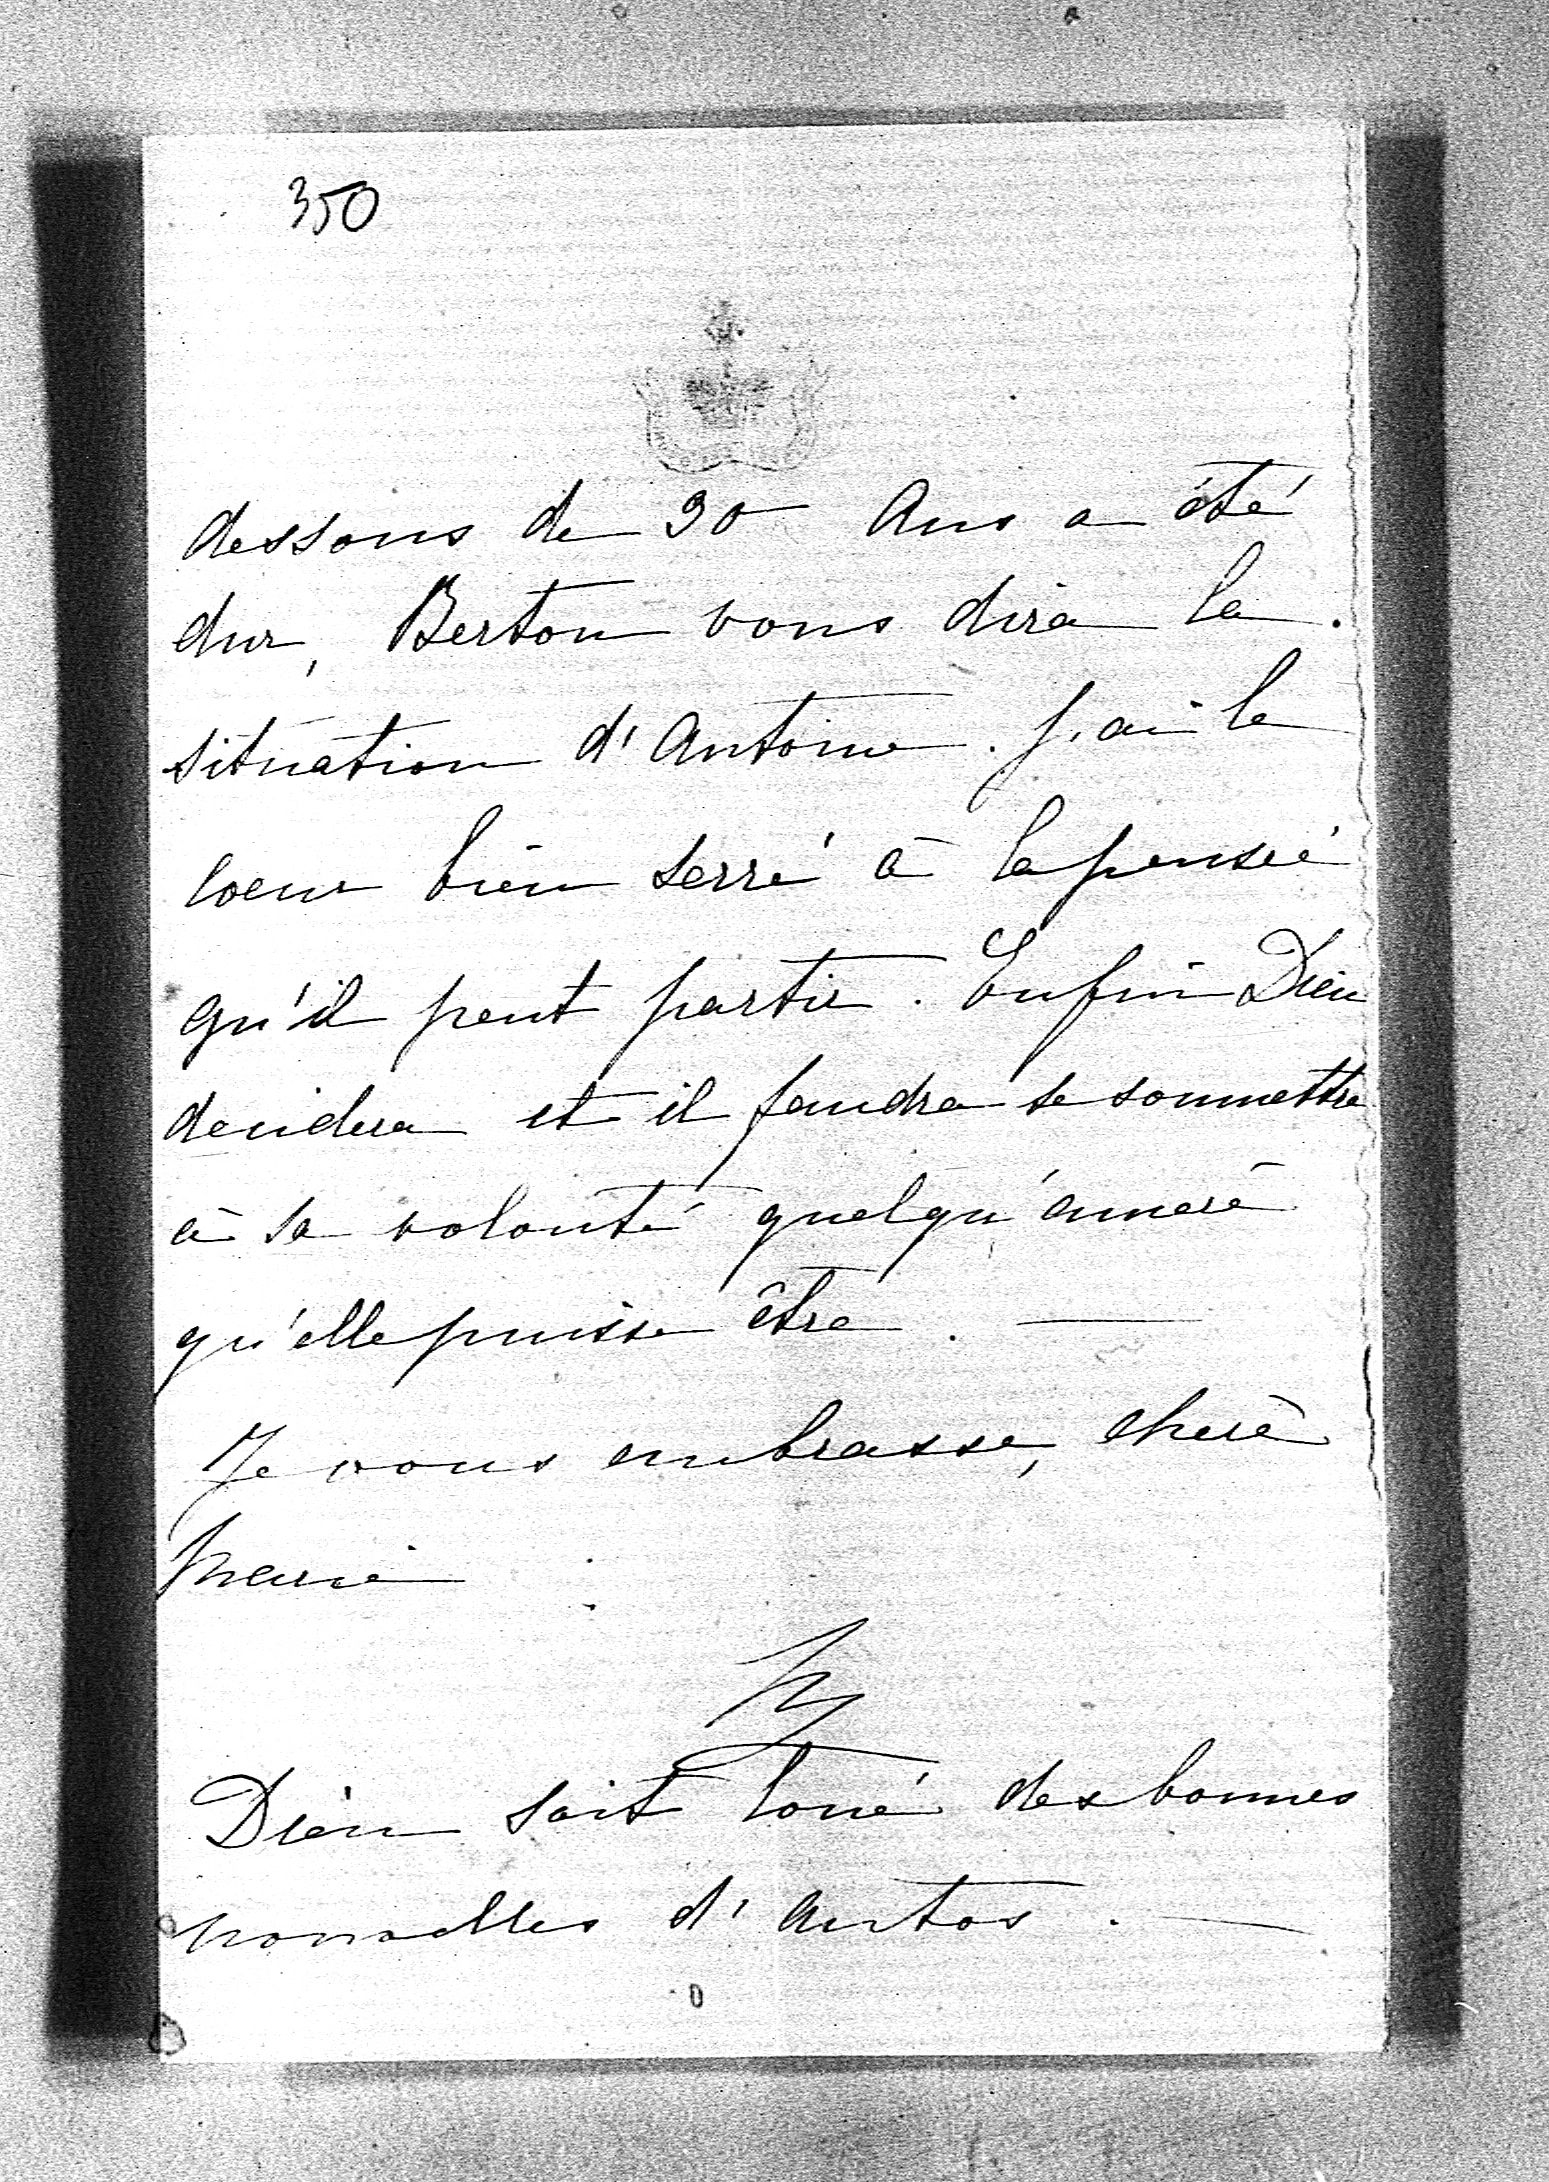 350
dessous de 30 Ans a été
dur, Berton vous dira la
situation d'Antoine. J'ai le
coeur bien serré à la pensée
qu'il peut partir. Enfin Dieu
decidera et il faudra se soumettre
à sa volonté quelqu'amère
qu'elle puisse être. —
Je vous embrasse, chère
Marie
M
Dieu soit loué des bonnes
nouvelles d'Antos. —